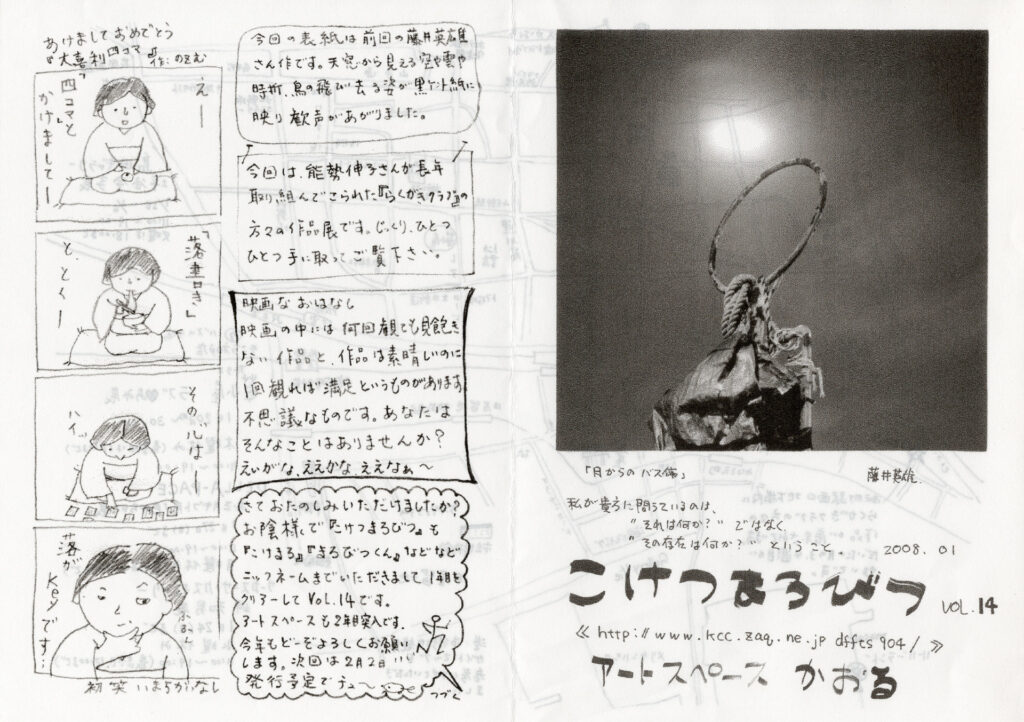 あけましておめでとう
『大喜利四コマ』作:のぞむ
えー
「四コマと」
かけましてー
「落書き」
と、とくー
そのココロは
ハイッ
落が
Keyです…
ふふん
初笑いまちがいなし
今回の表紙は前回の藤井英雄
さん作です。天窓から見える空や雲や
時折、鳥の飛び去る姿が黒ケント紙に
映り歓声があがりました。
今回は、能勢伸子さんが長年
取り組んでこられた『らくがきクラブ』の
方々の作品展です。じっくり、ひとつ
ひとつ手に取ってご覧下さい。
映画なおはなし
映画の中には何回観ても見飽き
ない作品と、作品は素晴しいのに
1回観れば満足というものがあります
不思議なものです。あなたは
そんなことはありませんか?
えいがな、ええかな、ええなぁ〜
さておたのしみいただけましたか?
お陰様で『こけつまろびつ』も
『こけまる』『まろびつくん』などなど
ニックネームまでいただきまして1年目を
クリアーしてVol.14です。
アートスペースも2年目突入です。
今年もどーぞよろしくお願い
します。次回は2月2日
発行予定でチュ〜
つづく
藤井英雄
私が貴方に問うているのは、
"それは何か?" ではなく
"その存在は何か?" ということ
2008.01
こけつまろびつ VOL.14
≪http://www.kcc.zaq.ne.jp dffts904/≫
アートスペース かおる